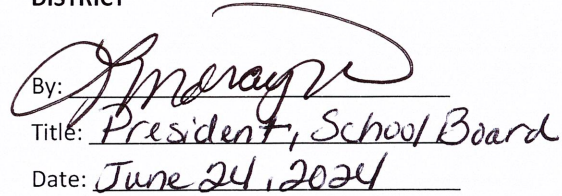 DISTRICT
By:
Title: President, School Board
Date: June 24, 2024